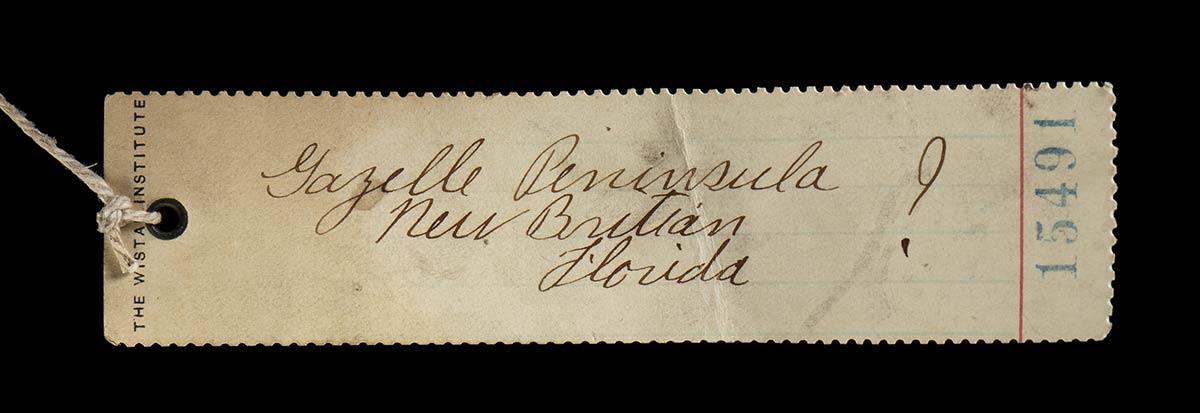 THE WISTAR INSTITUTE
Gazelle Peninsula ?
New Britian
Florida
15491